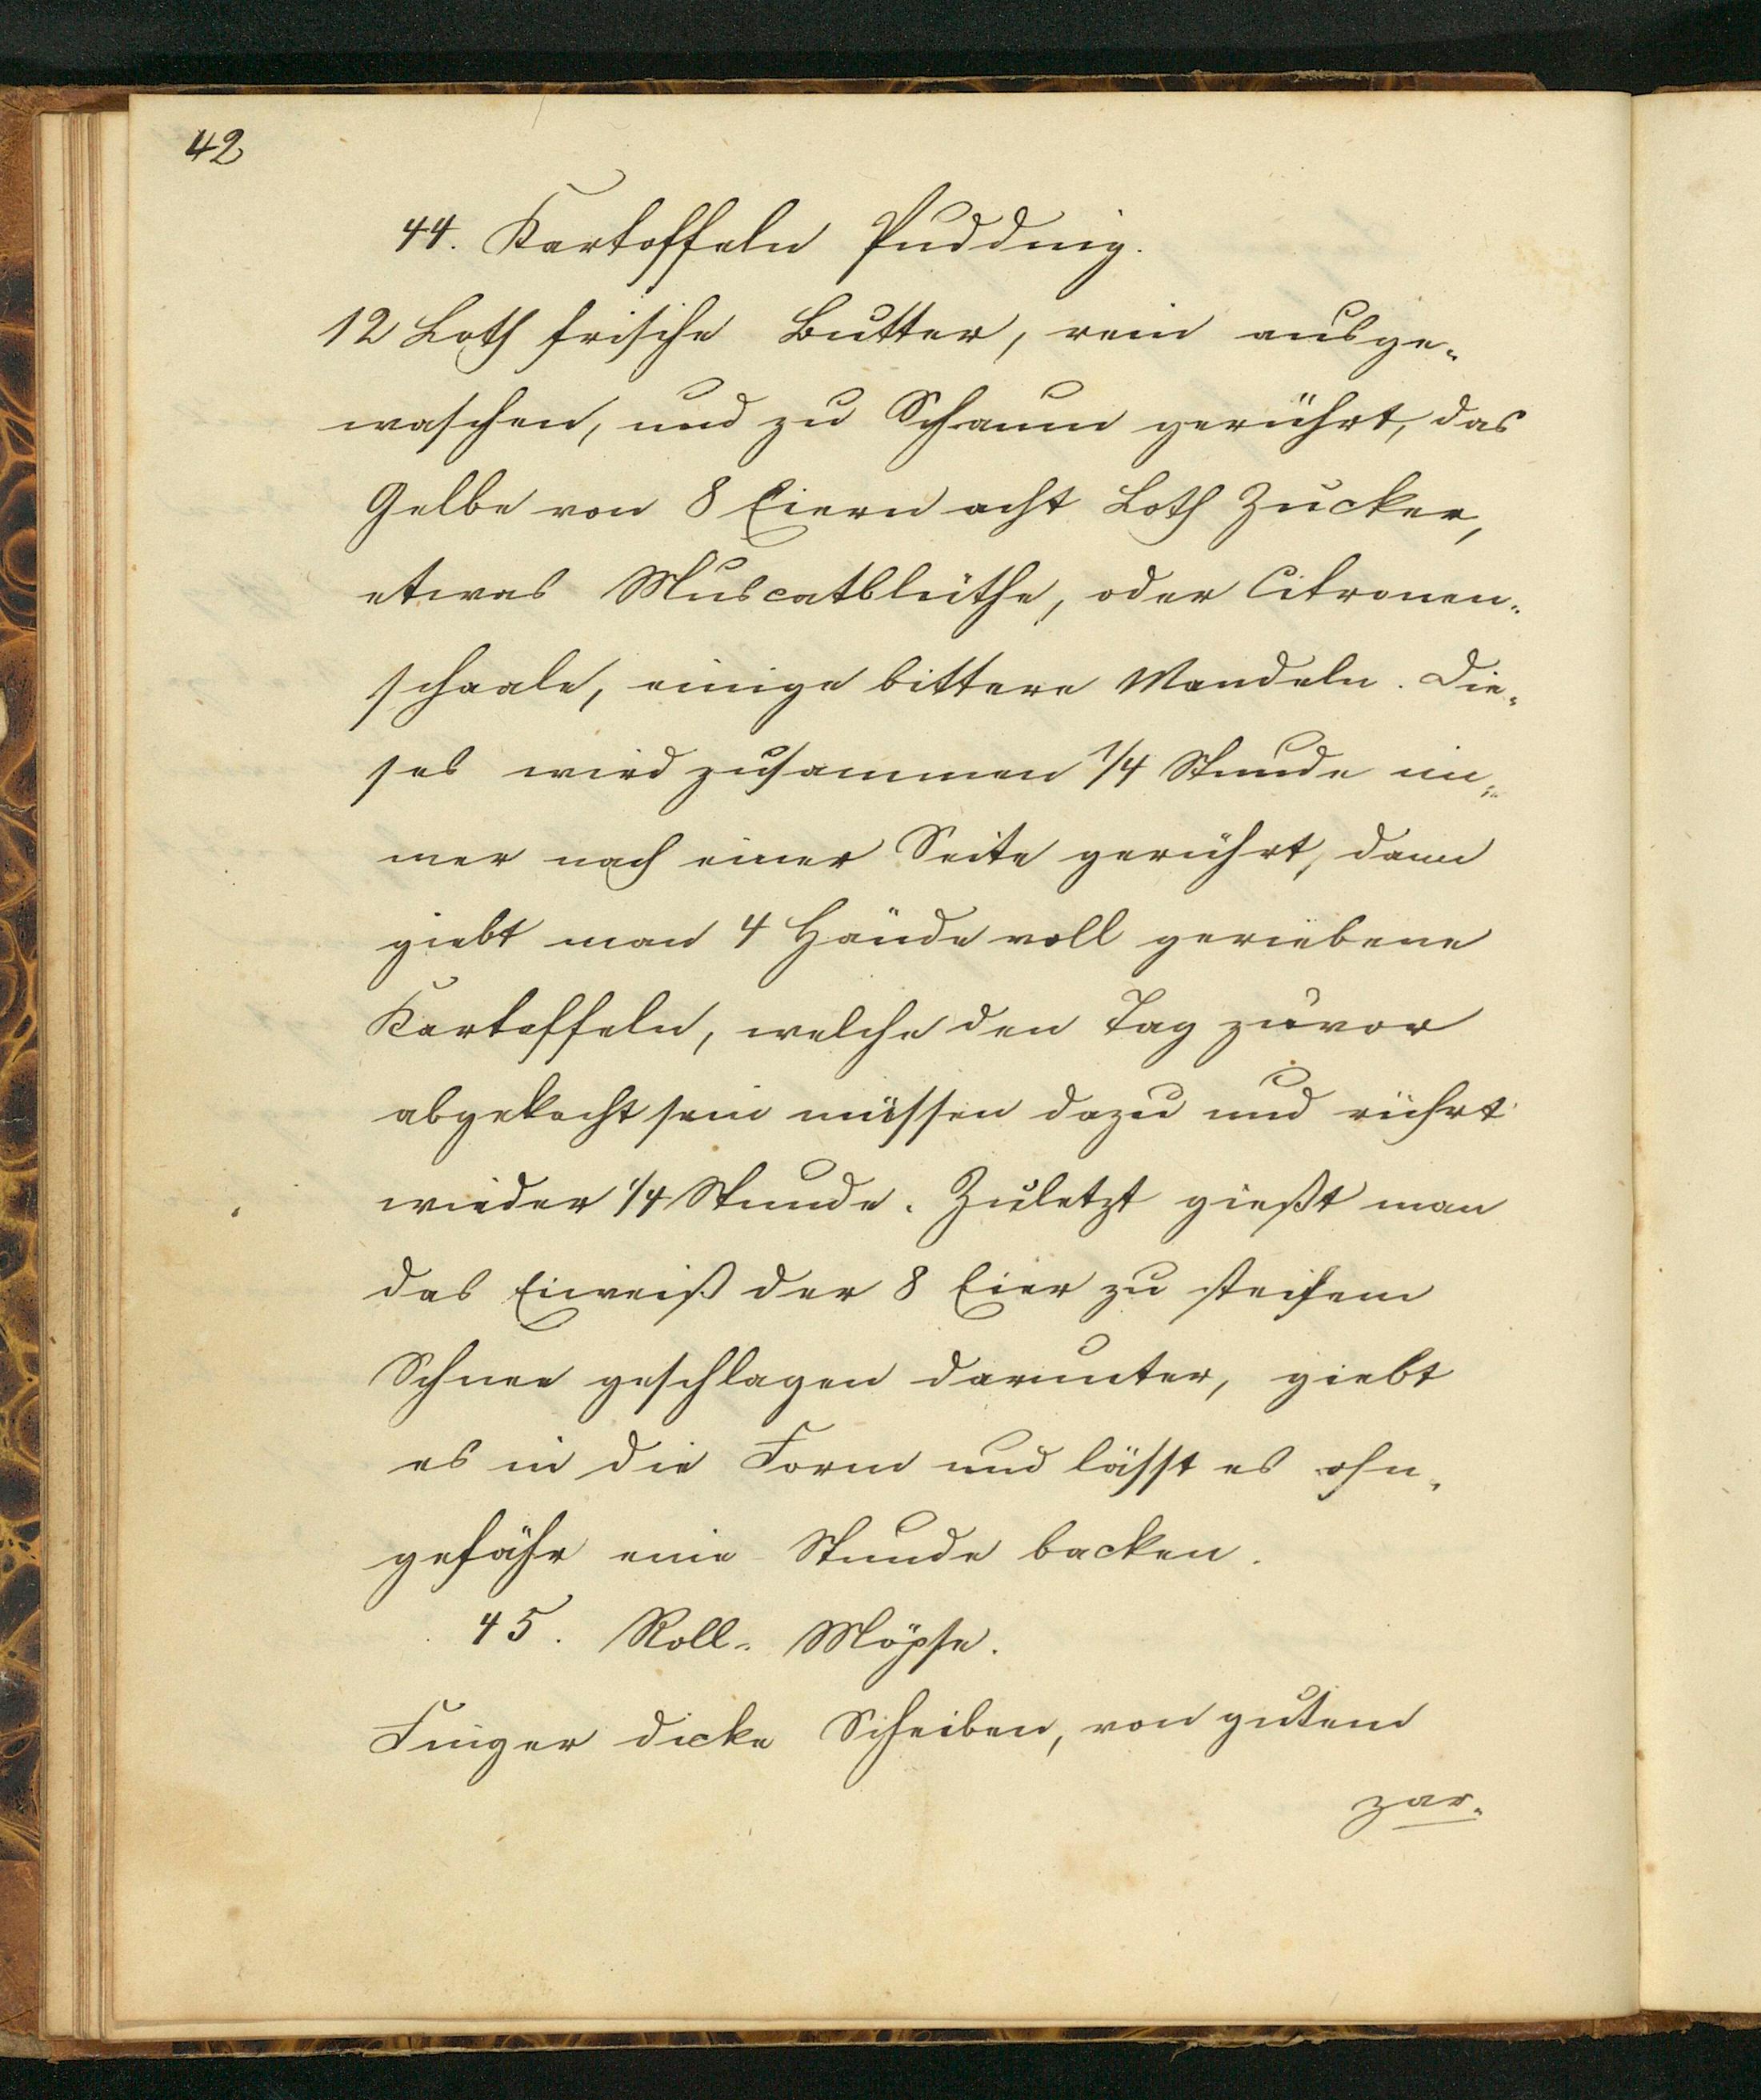 42
44. Kartoffeln Pudding.
12 Loth frische Butter, rein ausge-
waschen, und zu Schaum gerührt, das
Gelbe von 8 Eiern acht Loth Zucker,
etwas Muscatblüthe, oder Citronen-
schaale, einige bittere Mandeln. Die-
ses wird zusammen 1/4 Stunde im-
mer nach einer Seite gerührt, dann
giebt man 4 Hände voll geriebene
Kartoffeln, welche den Tag zuvor
abgekocht sein müssen dazu und rührt
wieder 1/4 Stunde. Zuletzt gießt man
das Eiweiß der 8 Eier zu steifem
Schnee geschlagen darunter, giebt
es in die Form und lässt es ohn-
gefähr eine Stunde backen.
45. Roll- Möpse.
Finger dicke Scheiben, von gutem
zar-